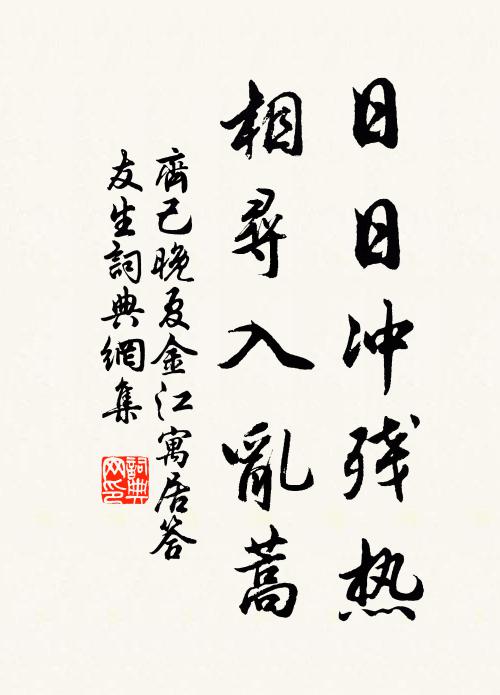 日日冲残热
相尋入亂蒿
齊己晚夏金江寓居答
友生詞典網集
詞典
网印